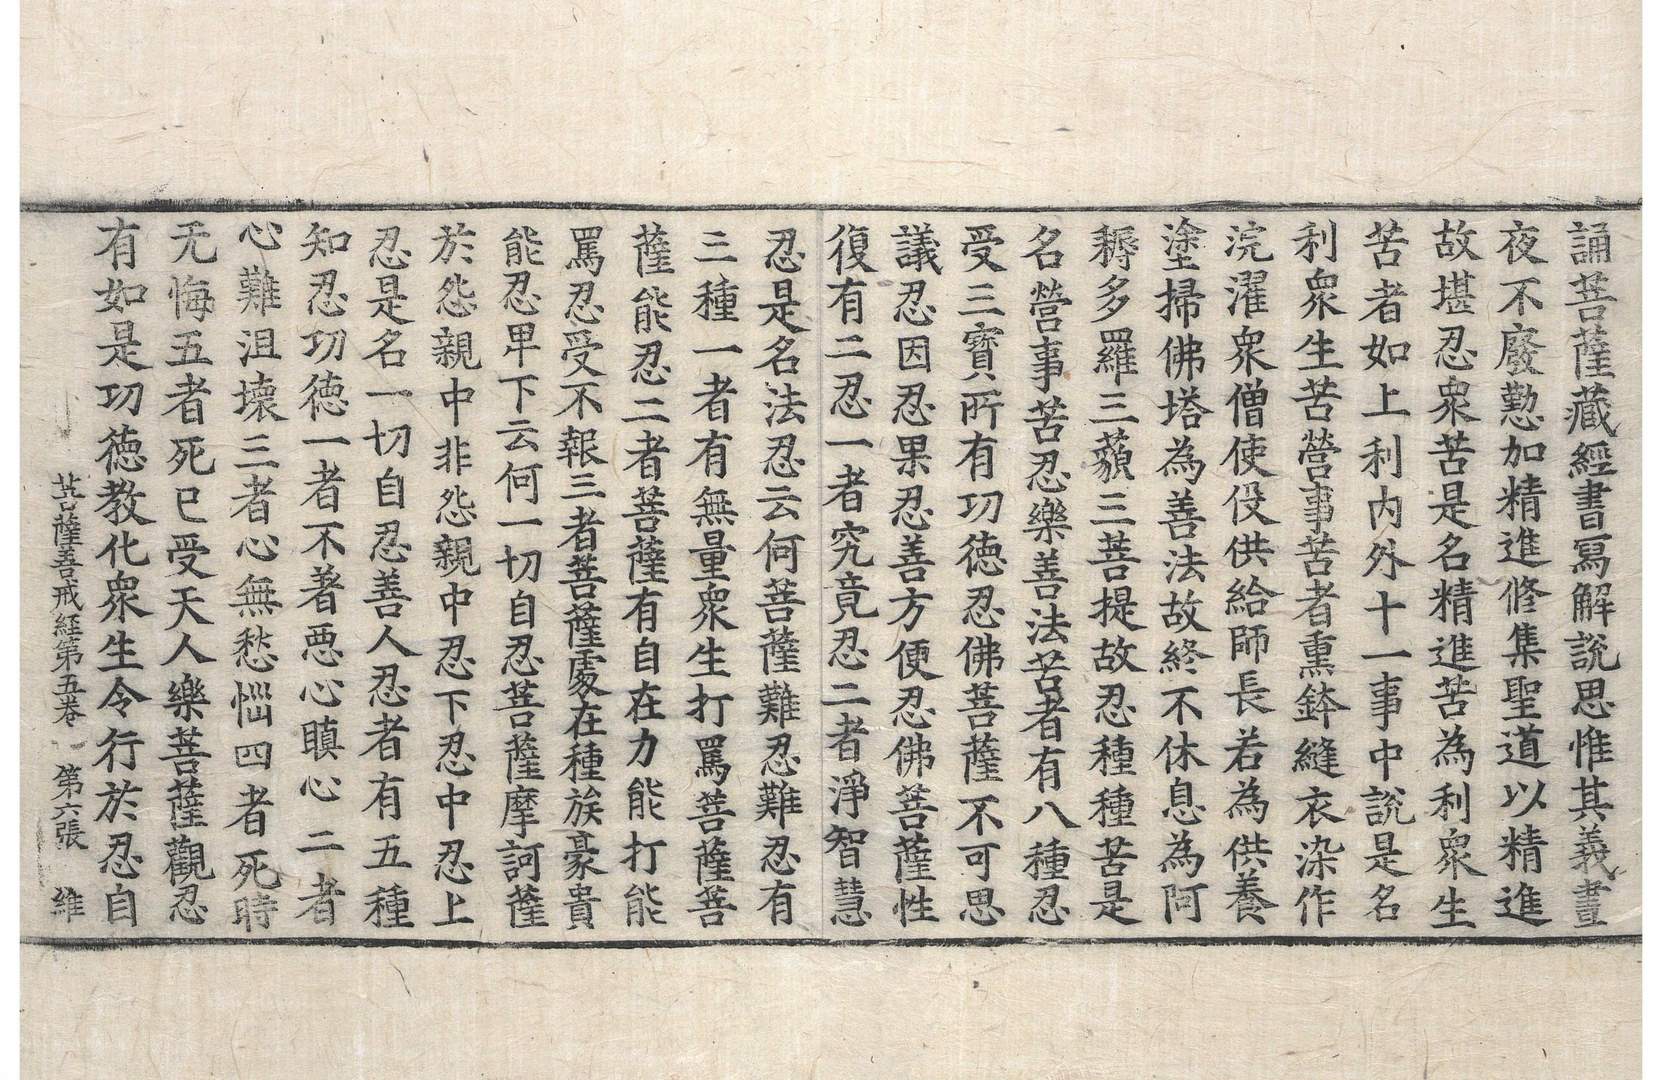 誦菩薩藏經書寫解說思惟其義晝
夜不廢懃加精進修集聖道以精進
故堪忍衆苦是名精進苦為利衆生
苦者如上利內外十一事中說是名
利衆生苦營事苦者熏鉢縫衣染作
浣濯衆僧使役供給師長若為供養
塗掃佛塔為善法故終不休息為阿
耨多羅三藐三菩提故忍種種苦是
名營事苦忍樂善法苦者有八種忍
受三寶所有功德忍佛菩薩不可思
議忍因忍果忍善方便忍佛菩薩性
復有二忍一者究竟忍二者淨智慧
忍是名法忍云何菩薩難忍難忍有
三種一者有無量衆生打罵菩薩菩
薩能忍二者菩薩有自在力能打能
罵忍受不報三者菩薩處在種族豪貴
能忍卑下云何一切自忍菩薩摩訶薩
於怨親中非怨親中忍下忍中忍上
忍是名一切自忍善人忍者有五種
知忍功德一者不著惡心瞋心二者
心難沮壞三者心無愁惱四者死時
无悔五者死已受天人樂菩薩觀忍
有如是功德教化衆生令行於忍自
菩薩善戒經第五卷 第六張 維